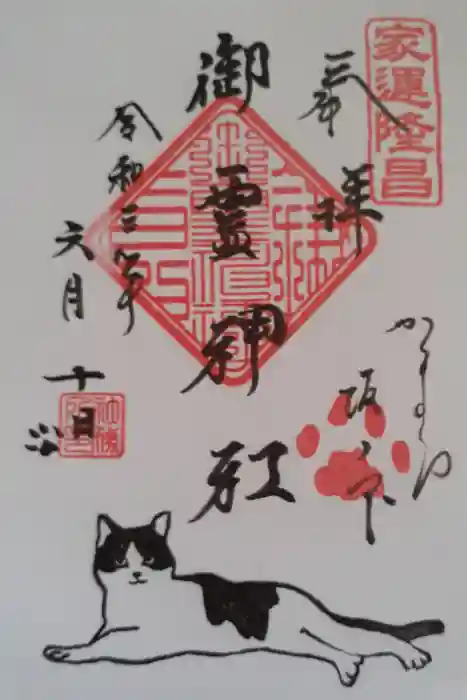 家運隆昌
奉拝
かまくら
坂ノ下
御霊神社
令和三年
六月十日